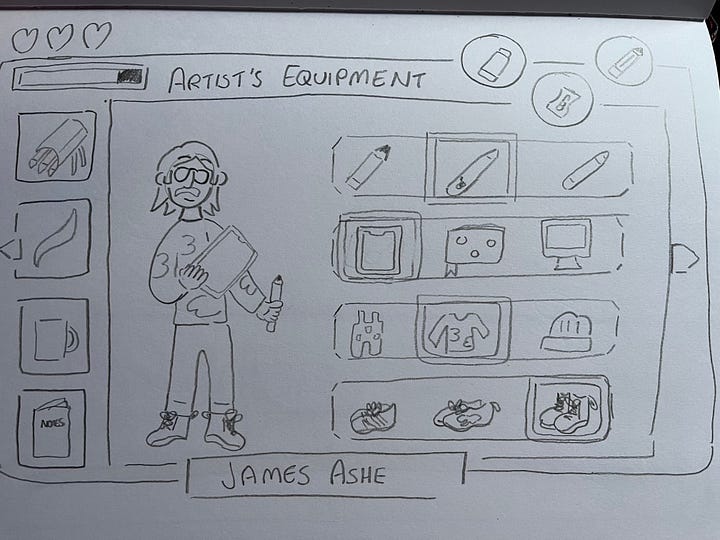 ARTIST'S EQUIPMENT
NOTES
JAMES ASHE